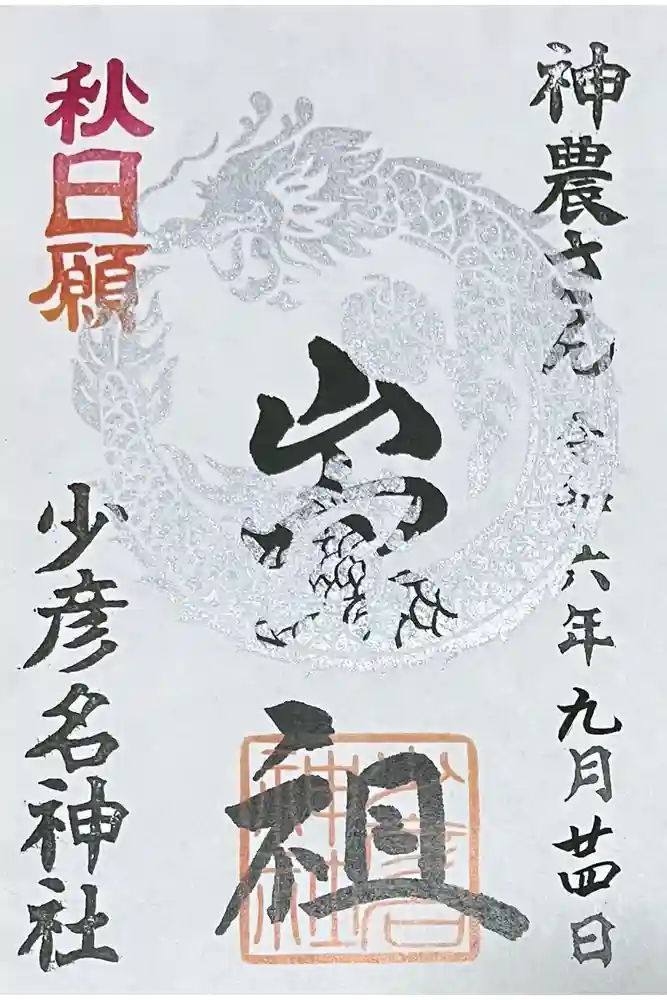 神農さん 令和六年九月廿四日
崇祖
秋日願
少彦名神社
少彦名神社